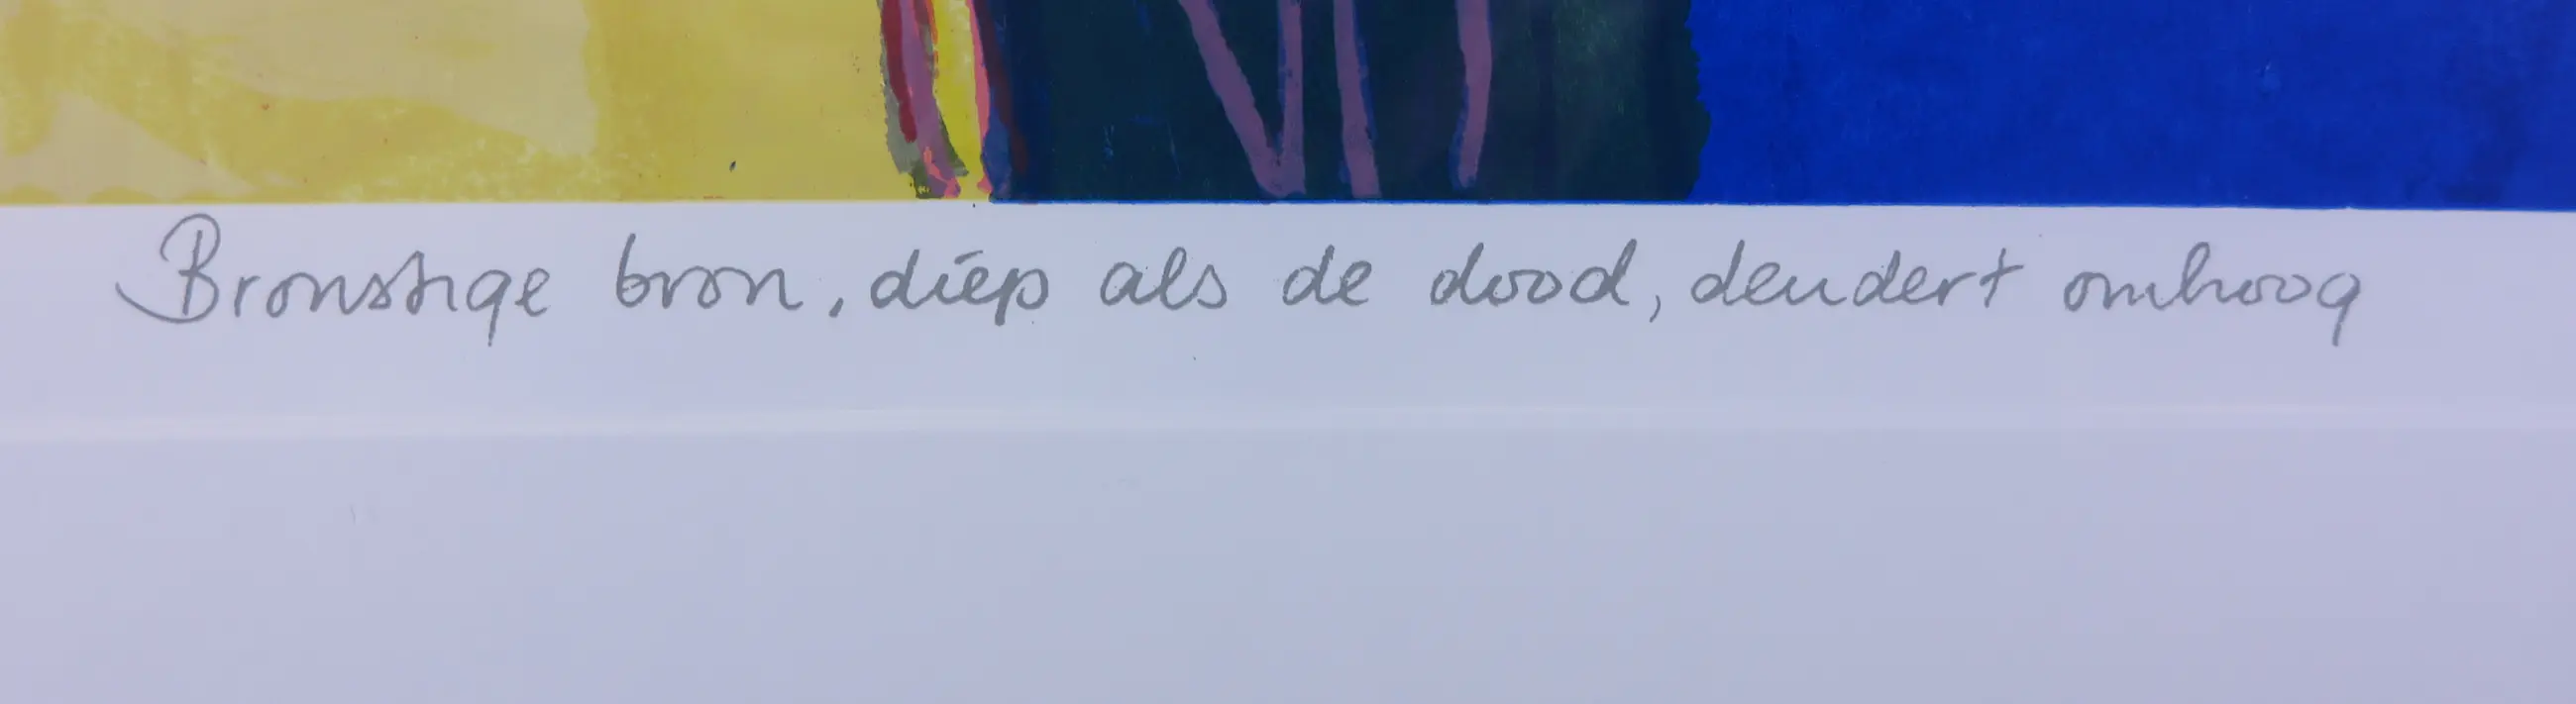 Bronstige bron, diep als de dood, dendert omhoog